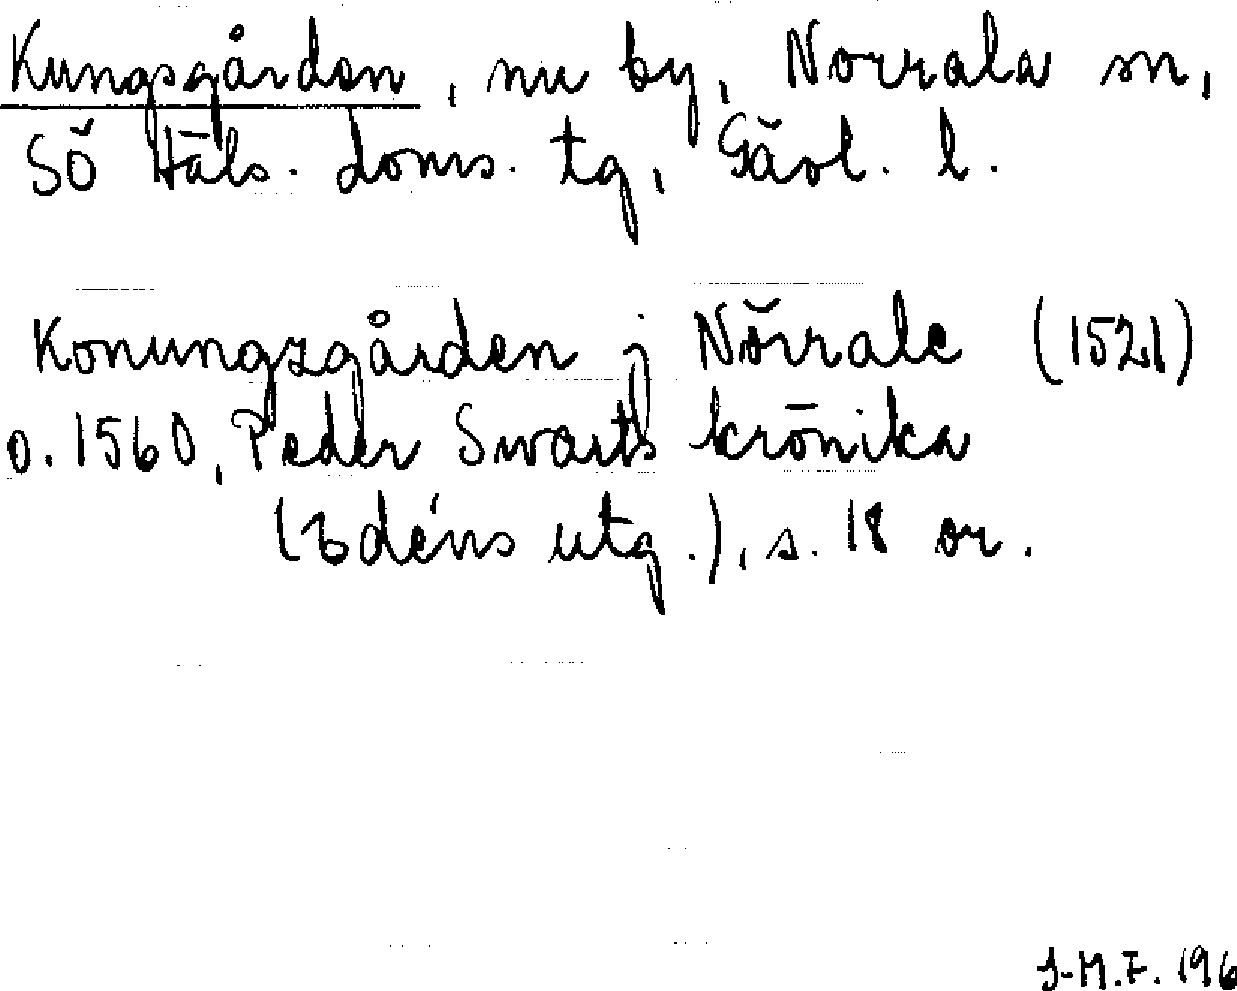 Kungsgården, nu by, Norrala sn,
SÖ Häls. doms. tg, Gävl. l.
Konungzgården j Nörrale (1521)
o. 1560, Peder Swarts krönika
(Edéns utg.), s. 18 or.
J-M.F. 196